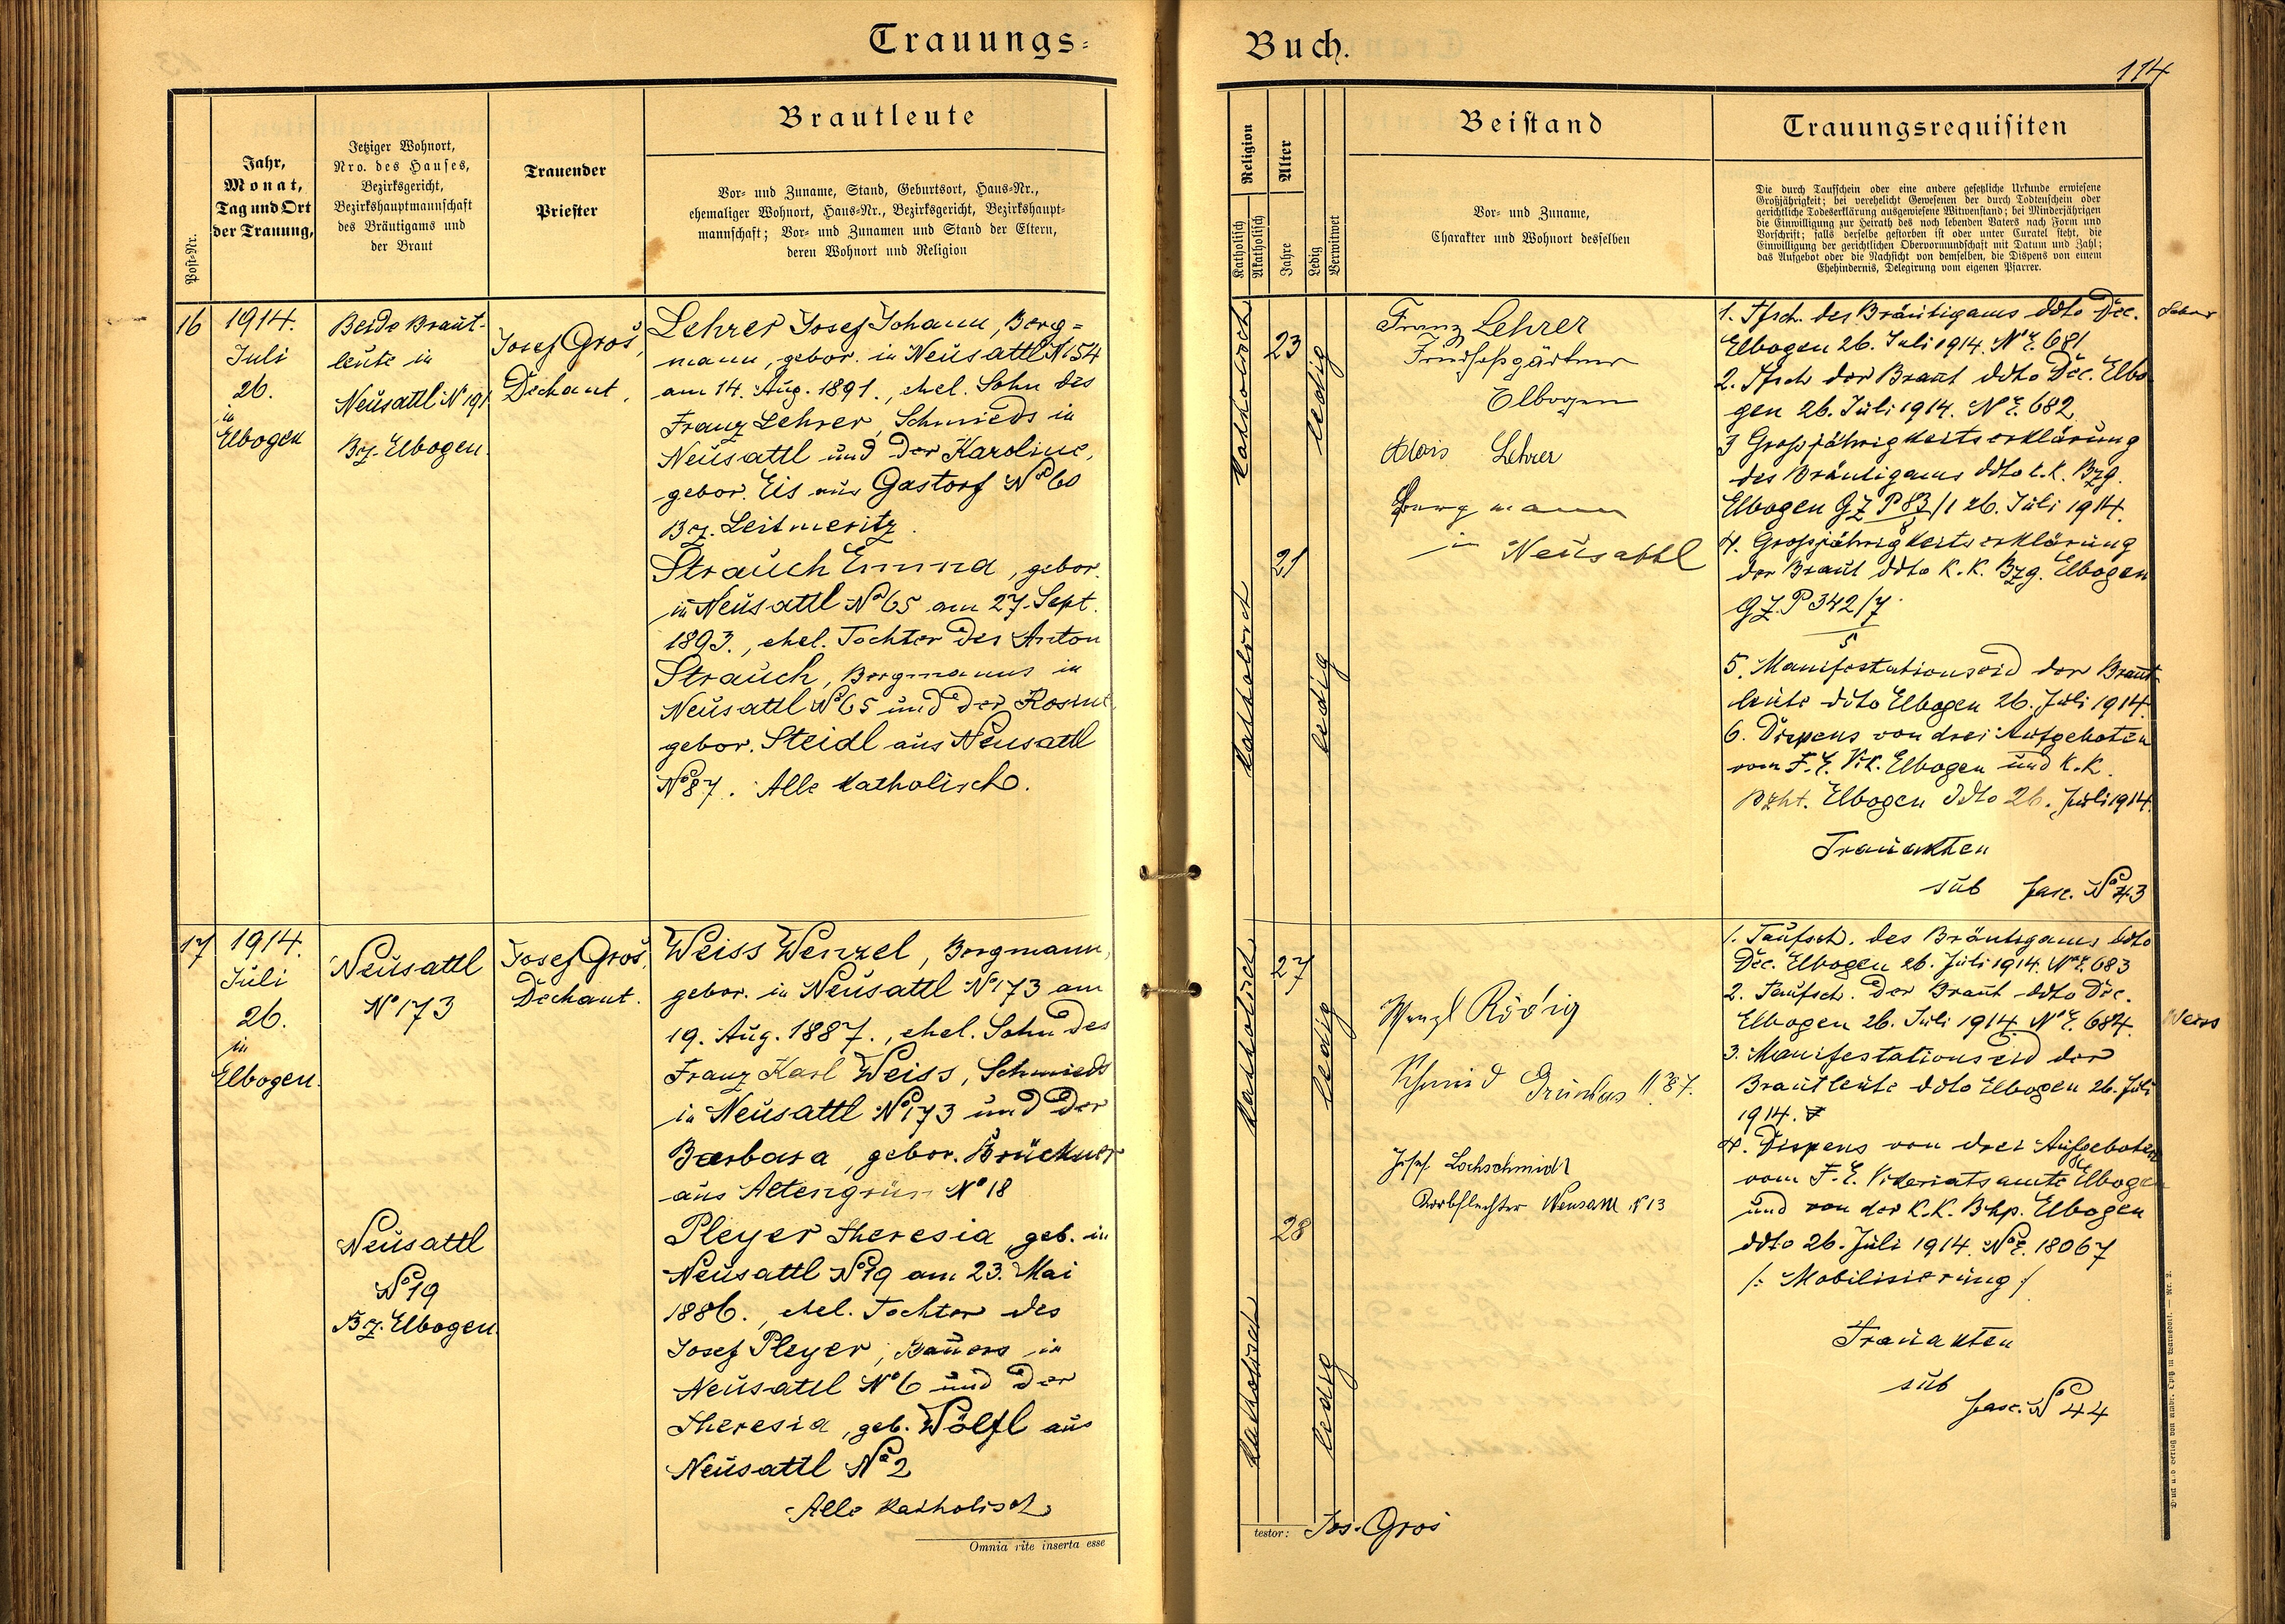 Trauungs-
Buch.
114
Post-Nr.
Jahr,
Monat,
Tag und Ort
der Trauung,
Jetziger Wohnort,
Nro. des Hauses,
Bezirksgericht,
Bezirkshauptmannschaft
des Bräutigams und
der Braut
Trauender
Priester
Brautleute
Vor- und Zuname, Stand, Geburtsort, Haus-Nr.,
ehemaliger Wohnort, Haus-Nr., Bezirksgericht, Bezirkshaupt-
mannschaft; Vor- und Zunamen und Stand der Eltern,
deren Wohnort und Religion
Religion
Katholisch
Akatholisch
Alter
Jahre
Ledig
Verwitwet
Beistand
Vor- und Zuname,
Charakter und Wohnort desselben
Trauungsrequisiten
Die durch Taufschein oder eine andere gesetzliche Urkunde erwiesene
Großjährigkeit; bei verehelicht Gewesenen der durch Todtenschein oder
gerichtliche Todeserklärung ausgewiesene Witwenstand; bei Minderjährigen
die Einwilligung zur Heirath des noch lebenden Vaters nach Form und
Vorschrift; falls derselbe gestorben ist oder unter Curatel steht, die
Einwilligung der gerichtlichen Obervormundschaft mit Datum und Zahl;
das Aufgebot oder die Nachsicht von demselben, die Dispens von einem
Ehehindernis, Delegirung vom eigenen Pfarrer.
16
1914.
Juli
26.
in
Elbogen
Beide Braut-
leute in
Neusattl N 191
Bz. Elbogen.
Josef Groš,
Dechant.
Lehrer Josef Johann, Berg=
mann, gebor. in Neusattl N 154
am 14. Aug. 1891., ehel. Sohn des
Franz Lehrer, Schmieds in
Neusattl und der Karoline,
gebor. Eis aus Gastorf No 60
Bz. Leitmeritz.
Strauch Emma, gebor.
in Neusattl No 65 am 27. Sept.
1893., ehel. Tochter des Anton
Strauch, Bergmanns in
Neusattl No 65 und der Rosine,
gebor. Steidl aus Neusattl
No 87. Alle katholisch.
katholisch
23
ledig
katholisch
21
ledig
Franz Lehrer
Elbogen
Alois Lehrer
Bergmann
in Neusattl
1. Tfsch. des Bräutigams ddto Dec.
Elbogen 26. Juli 1914. No E. 681
2. Tfsch der Braut ddto Dec. Elbo
gen 26. Juli 1914. N E. 682
3 Großjährigkeitserklärung
des Bräutigams ddto k.k. Bzg.
Elbogen GZ P 83/1 26. Juli 1914.
8
4. Großjährigkeitserklärung
der Braut ddto K.K. Bzg. Elbogen
GZ. P 342/7
5
5. Manifestationseid der Braut
leute ddto Elbogen 26. Juli 1914.
6. Dispens von drei Aufgeboten
vom F. E. Vik. Elbogen und K.K.
Bzht. Elbogen ddto 26. Juli 1914.
Trauakten
sub fasc. No 43
17
1914.
Juli
26.
in
Elbogen.
Neusattl
No 173
Neusattl
No 19
Bz. Elbogen.
Josef Groš,
Dechant.
Weiss Wenzel, Bergmann,
gebor. in Neusattl No 173 am
19. Aug. 1887., ehel. Sohn des
Franz Karl Weiss, Schmieds
in Neusattl No 173 und der
Barbara, gebor. Brückner
aus Altengrün No 18
Pleyer Theresia, geb. in
Neusattl No 19 am 23. Mai
1886., ehel. Tochter des
Josef Pleyer, Bauers in
Neusattl No 6 und der
Theresia, geb. Wölfl aus
Neusattl No 2
Alle katholisch
katholisch
27
ledig
katholisch
28
ledig
Wenzl Rödig
Schmid
87.
Josef Lochschmidt
Korbflechter Neusattl No 13
1. Taufsch. des Bräutigams ddto
Dec. Elbogen 26. Juli 1914. No E. 683
2. Taufsch. der Braut ddto Dec.
Elbogen 26. Juli 1914 No E. 684.
Weiss
3. Manifestationseid der
Brautleute ddto Elbogen 26. Juli
1914.
4. Dispens von drei Aufgeboten
vom F. E. Vikariatsamte Elbogen
und von der K.K. Bhp. Elbogen
ddto 26. Juli 1914. No E. 18067
/: Mobilisierung /
Trauakten
sub
fasc. No 44
Omnia rite inserta esse
testor: Jos. Groš